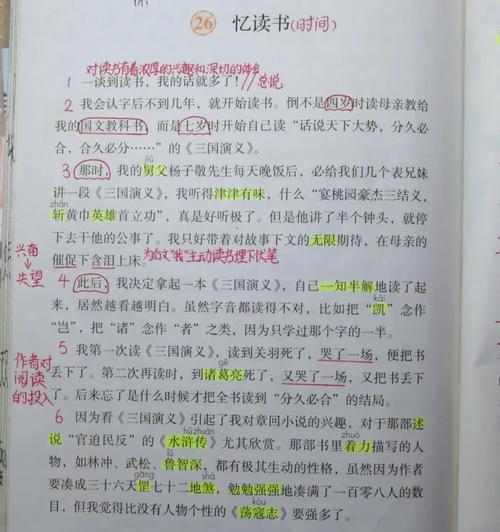 26 忆读书(时间)
对读书有着浓厚的兴趣和深切的体会
1 一谈到读书，我的话就多了！//总说
2 我会认字后不到几年，就开始读书。倒不是四岁时读母亲教给
我的国文教科书，而是七岁时开始自己读“话说天下大势，分久必
合，合久必分……”的《三国演义》。
jiù
3 那时，我的舅父杨子敬先生每天晚饭后，必给我们几个表兄妹
讲一段《三国演义》，我听得津津有味，什么“宴桃园豪杰三结义，
zhǎn
斩黄巾英雄首立功”，真是好听极了。但是他讲了半个钟头，就停
下去干他的公事了。我只好带着对故事下文的无限期待，在母亲的
催促下含泪上床。为白文“我”主动读书埋下伏笔
兴奋
失望
4 此后，我决定拿起一本《三国演义》，自己一知半解地读了起
kǎi
来，居然越看越明白。虽然字音都读得不对，比如把“凯”念作
“岂”，把“诸”念作“者”之类，因为只学过那个字的一半。
5 我第一次读《三国演义》，读到关羽死了，哭了一场，便把书
gě
丢下了。第二次再读时，到诸葛亮死了，又哭了一场，又把书丢下
了。后来忘了是什么时候才把全书读到“分久必合”的结局。
作者对
阅读
的投入
6 因为看《三国演义》引起了我对章回小说的兴趣，对于那部述
hǔ zhuàn
说“官迫民反”的《水浒传》尤其欣赏。那部书里着力描写的人
zhuó
物，如林冲、武松、鲁智深，都有极其生动的性格，虽然因为作者
lǔ
gāng shà
要凑成三十六天罡七十二地煞，勉勉强强地凑满了一百零八人的数
kòu
目，但我觉得比没有人物个性的《荡寇志》要强多了。